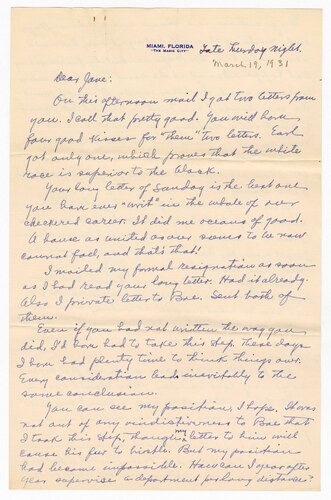 MIAMI, FLORIDA
"THE MAGIC CITY"
Late Tuesday night.
March 19, 1931
Dear Jane:
On this afternoon mail I got two letters from
you. I call that pretty good. You will have
four good kisses for "them" two letters. Earl
got only one, which proves that the white
race is superior to the black.
Your long letter of Sunday is the best one
you have ever "writ" in the whole of our
checkered career. It did me oceans of good.
A house as united as ours seems to be now
cannot fail, and that's that!
I mailed my formal resignation as soon
as I had read your long letter. Had it already.
Also 1 private letter to Bae. Sent both of
them.
Even if you had not written the way you
did, I'd have had to take this step. These days
I have had plenty time to think things over.
Every consideration leads inevitably to the
same conclusion.
You can see my position, I hope. It was
not out of any vindictiveness to Bae that
I took this step, though my letter to him will
cause his fur to bristle. But my position
had become impossible. How can I year after
year supervise a department